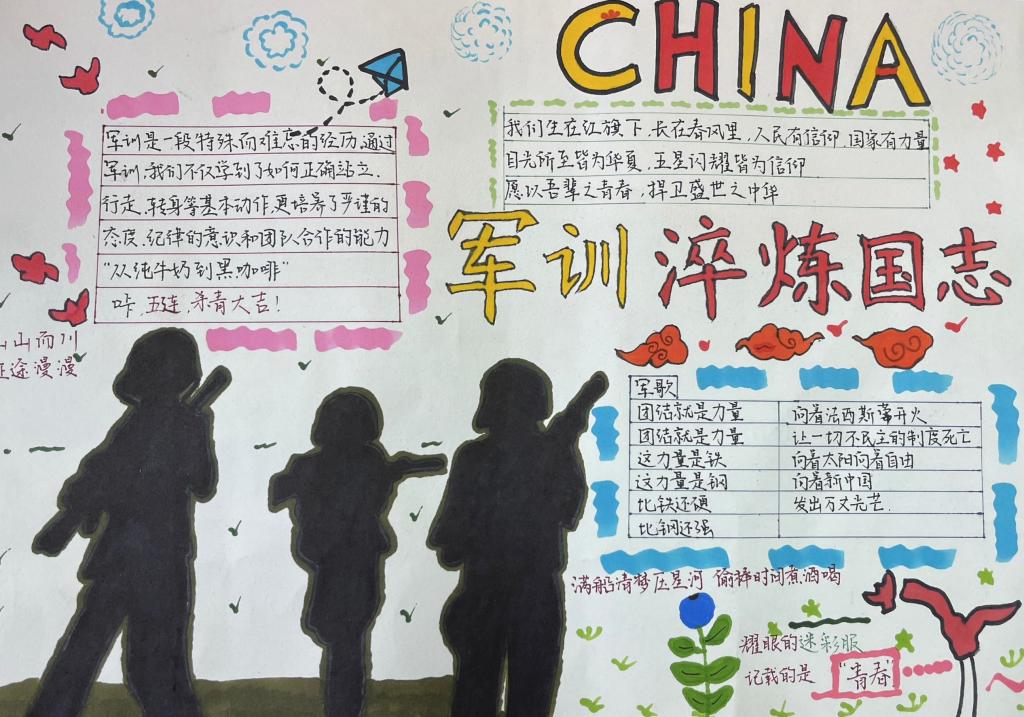 CHINA
军训是一段特殊而难忘的经历,通过
军训,我们不仅学到了如何正确站立.
行走,转身等基本动作,更培养了严谨的
态度、纪律的意识和团队合作的能力
“从纯牛奶到黑咖啡”
咔,五连,杀青大吉!
我们生在红旗下,长在春风里,人民有信仰,国家有力量
目光所至皆为华夏,五星闪耀皆为信仰
愿以吾辈之青春,捍卫盛世之中华
军训 淬炼国志
山而川
征途漫漫
军歌
团结就是力量 向着法西斯蒂开火
团结就是力量 让一切不民主的制度死亡
这力量是铁 向着太阳向着自由
这力量是钢 向着新中国
比铁还硬 发出万丈光芒.
比钢还强
满船清梦压星河 偷得时间煮酒喝
耀眼的迷彩服
记载的是 “青春”